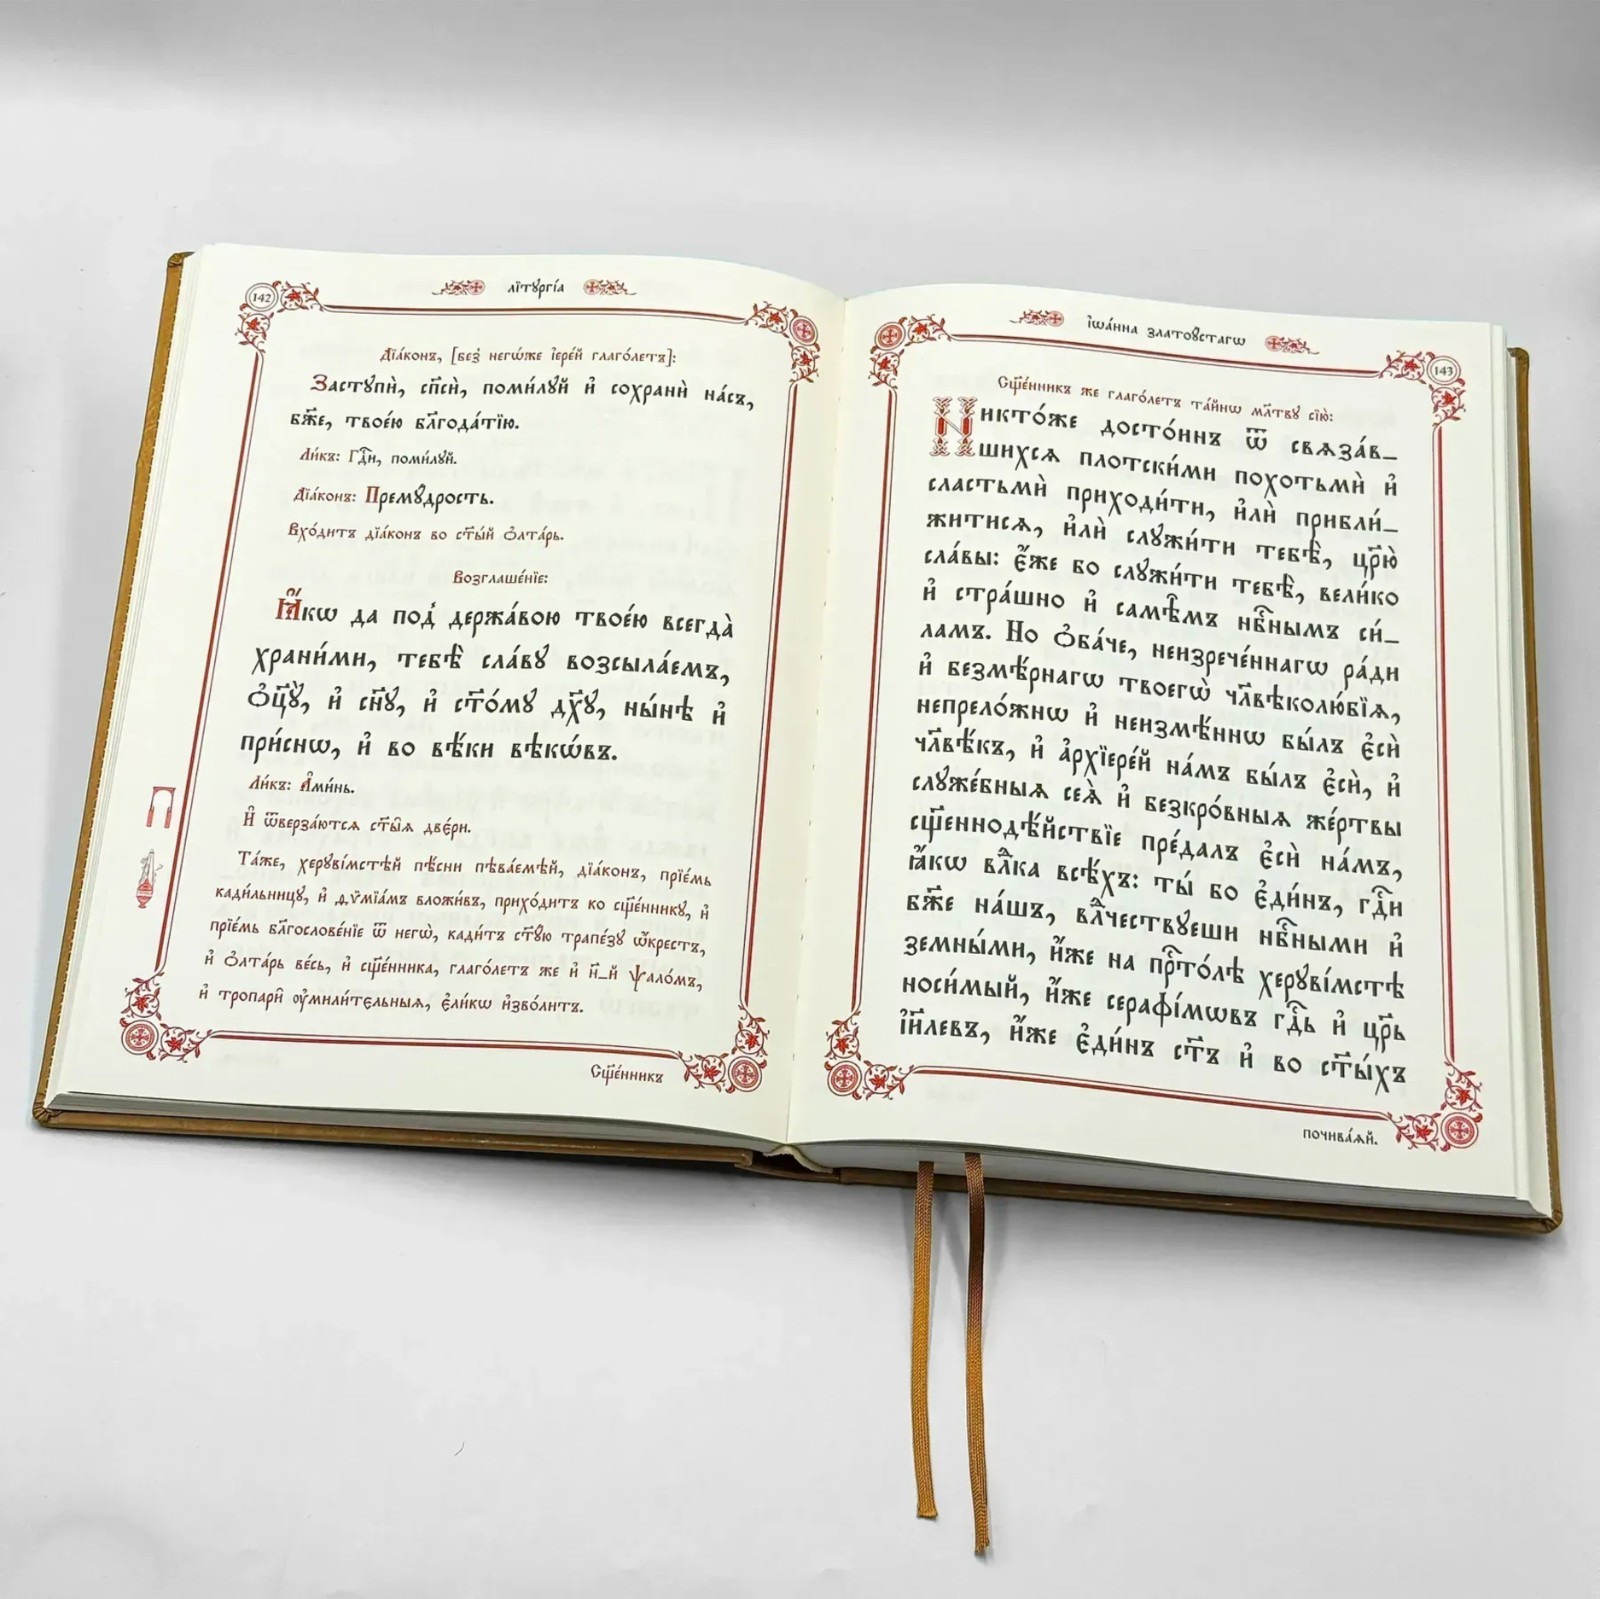 142
лїтꙋргі́а
Дїа́конъ, [без̾ негѡ́же їере́й глаго́летъ]:
Застꙋпѝ, сп҃сѝ, поми́лꙋй и҆ сохранѝ на́съ,
бж҃е, твое́ю блг҃ода́тїю.
Ли́къ: Гдⷭ҇и, поми́лꙋй.
Дїа́конъ: Премꙋ́дрость.
Вхо́дитъ дїа́конъ во ст҃ы́й ѻ҆лта́рь.
Возглаше́нїе:
Ꙗ҆́кѡ да под̾ держа́вою твое́ю всегда̀
храни́ми, тебѣ̀ сла́вꙋ возсыла́емъ,
ѻ҆ц҃ꙋ̀, и҆ сн҃ꙋ, и҆ ст҃о́мꙋ дх҃ꙋ, ны́нѣ и҆
при́снѡ, и҆ во вѣ́ки вѣкѡ́въ.
Ли́къ: А҆ми́нь.
И҆ ѿверза́ются ст҃ы̑ѧ две́ри.
Та́же, херꙋві́мстѣй пѣ́сни пѣва́емѣй, дїа́конъ, прїе́мь
кади́льницꙋ, и҆ ѳѷмїа́мъ вложи́въ, прихо́дитъ ко сщ҃е́нникꙋ, и҆
прїе́мь блг҃ослове́нїе ѿ негѡ̀, кади́тъ ст҃ꙋ́ю трапе́зꙋ ѡ҆́крестъ,
и҆ ѻ҆лта́рь ве́сь, и҆ сщ҃е́нника, глаго́летъ же и҆ н҃-й ѱало́мъ,
и҆ тропари̑ ᲂу҆мили́тельныѧ, є҆ли́кѡ и҆зво́литъ.
Сщ҃е́нникъ
143
і҆ѡа́нна златоꙋ́стагѡ
Сщ҃е́нникъ же глаго́летъ та́йнѡ мл҃твꙋ сїю̀:
Никто́же досто́инъ ѿ свѧза́в-
шихсѧ плотски́ми похотьмѝ и҆
сластьмѝ приходи́ти, и҆лѝ прибли́-
житисѧ, и҆лѝ слꙋжи́ти тебѣ̀, цр҃ю̀
сла́вы: є҆́же бо слꙋжи́ти тебѣ̀, вели́ко
и҆ стра́шно и҆ самѣ̑мъ нбⷭ҇нымъ си́-
ламъ. Но ѻ҆ба́че, неизрече́ннагѡ ра́ди
и҆ безмѣ́рнагѡ твоегѡ̀ чл҃вѣколю́бїѧ,
непрело́жнѡ и҆ неизмѣ́ннѡ бы́лъ є҆сѝ
чл҃вѣ́къ, и҆ а҆рхїере́й на́мъ бы́лъ є҆сѝ, и҆
слꙋже́бныѧ сеѧ̀ и҆ безкро́вныѧ же́ртвы
сщ҃еннодѣ́йствїе пре́далъ є҆сѝ на́мъ,
ꙗ҆́кѡ влⷣка всѣ́хъ: ты́ бо є҆ди́нъ, гдⷭ҇и
бж҃е на́шъ, влⷣчествꙋеши нбⷭ҇ными и҆
земны́ми, и҆́же на прⷭ҇то́лѣ херꙋві́мстѣ
носи́мый, и҆́же серафі́мѡвъ гдⷭ҇ь и҆ цр҃ь
і҆и҃левъ, и҆́же є҆ди́нъ ст҃ъ и҆ во ст҃ы́хъ
почива́ѧй.